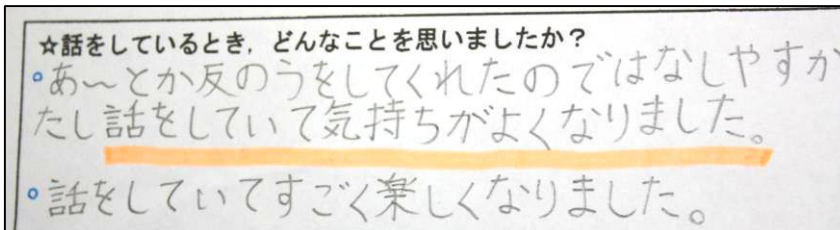 ☆話をしているとき，どんなことを思いましたか？
。あ～とか反のうをしてくれたのではなしやすか
たし話をしていて気持ちがよくなりました。
。話をしていてすごく楽しくなりました。